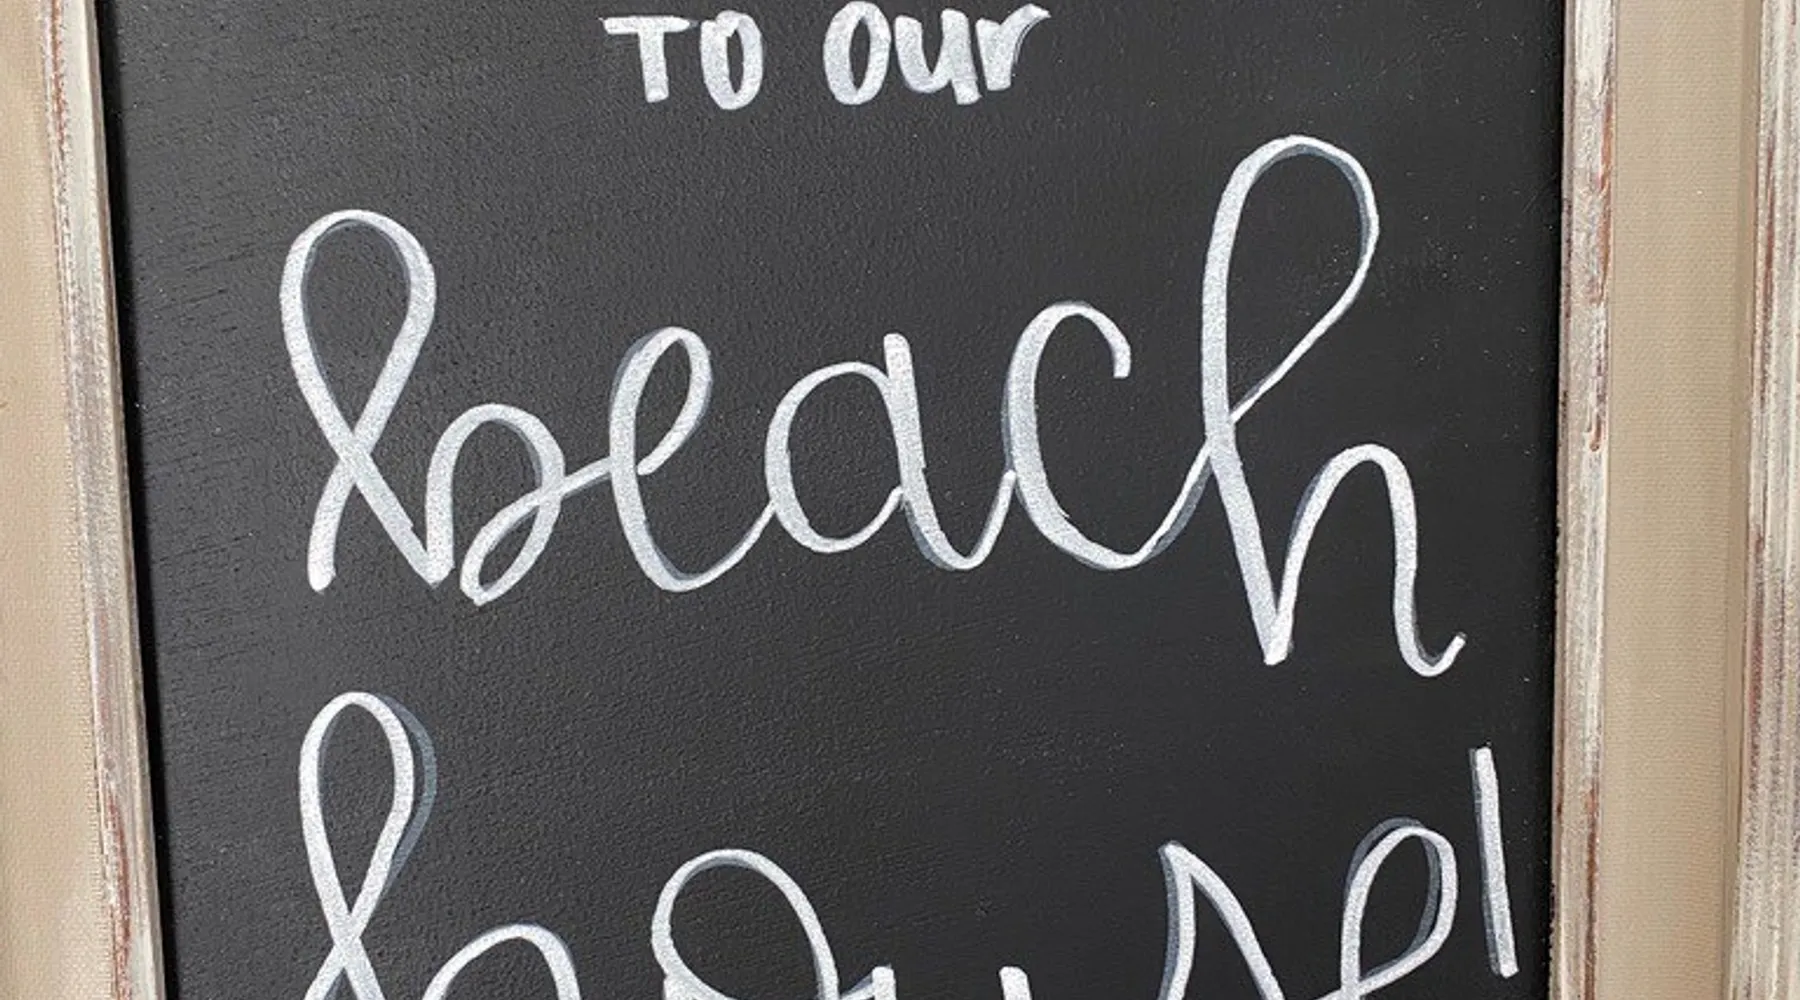 to our
beach
house!